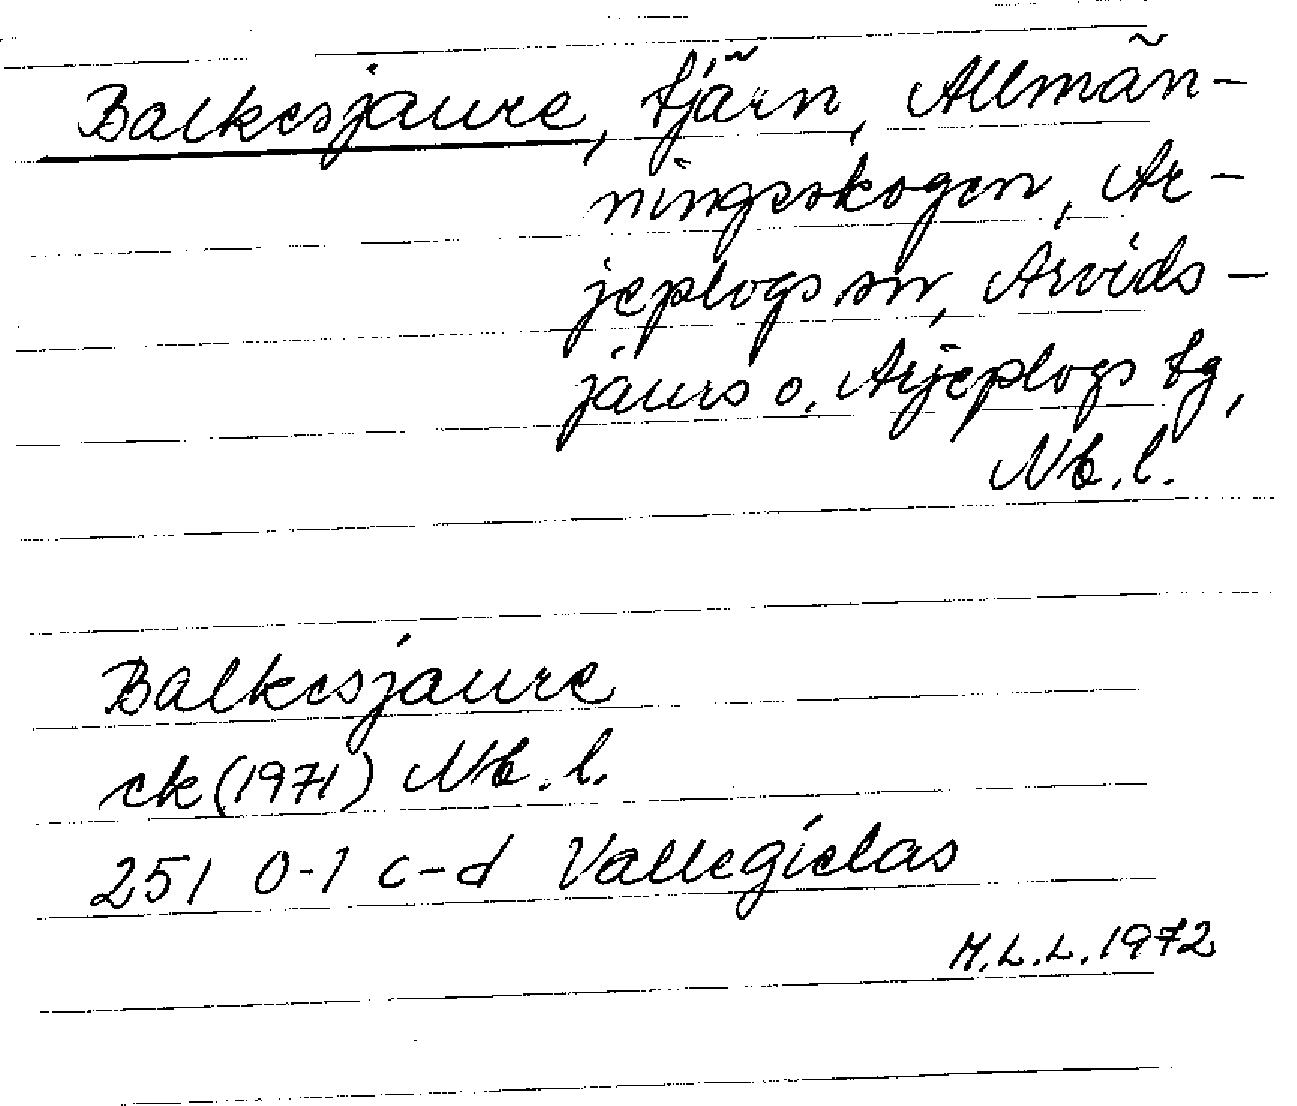 Balkesjaure, tjärn, Allmän-
ningsskogen, Ar-
jeplogs sn, Arvids-
jaurs o. Arjeplogs tg,
Nb. l.
Balkesjaure
ck (1971) Nb. l.
251 0-1 c-d Vallegielas
M.L.L. 1972